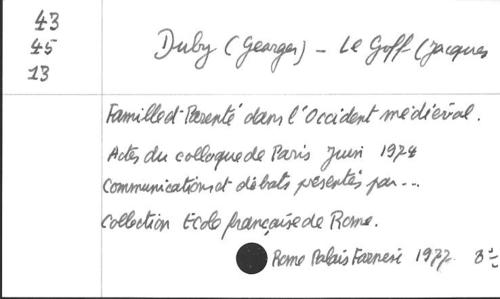 43
45
13
Duby (Georges) - Le Goff (Jacques
Famille et Parenté dans l'Occident médiéval.
Actes du colloque de Paris Juin 1974
Communications et débats présentés par...
Collection Ecole française de Rome.
Rome Palais Farnese 1977. 8°